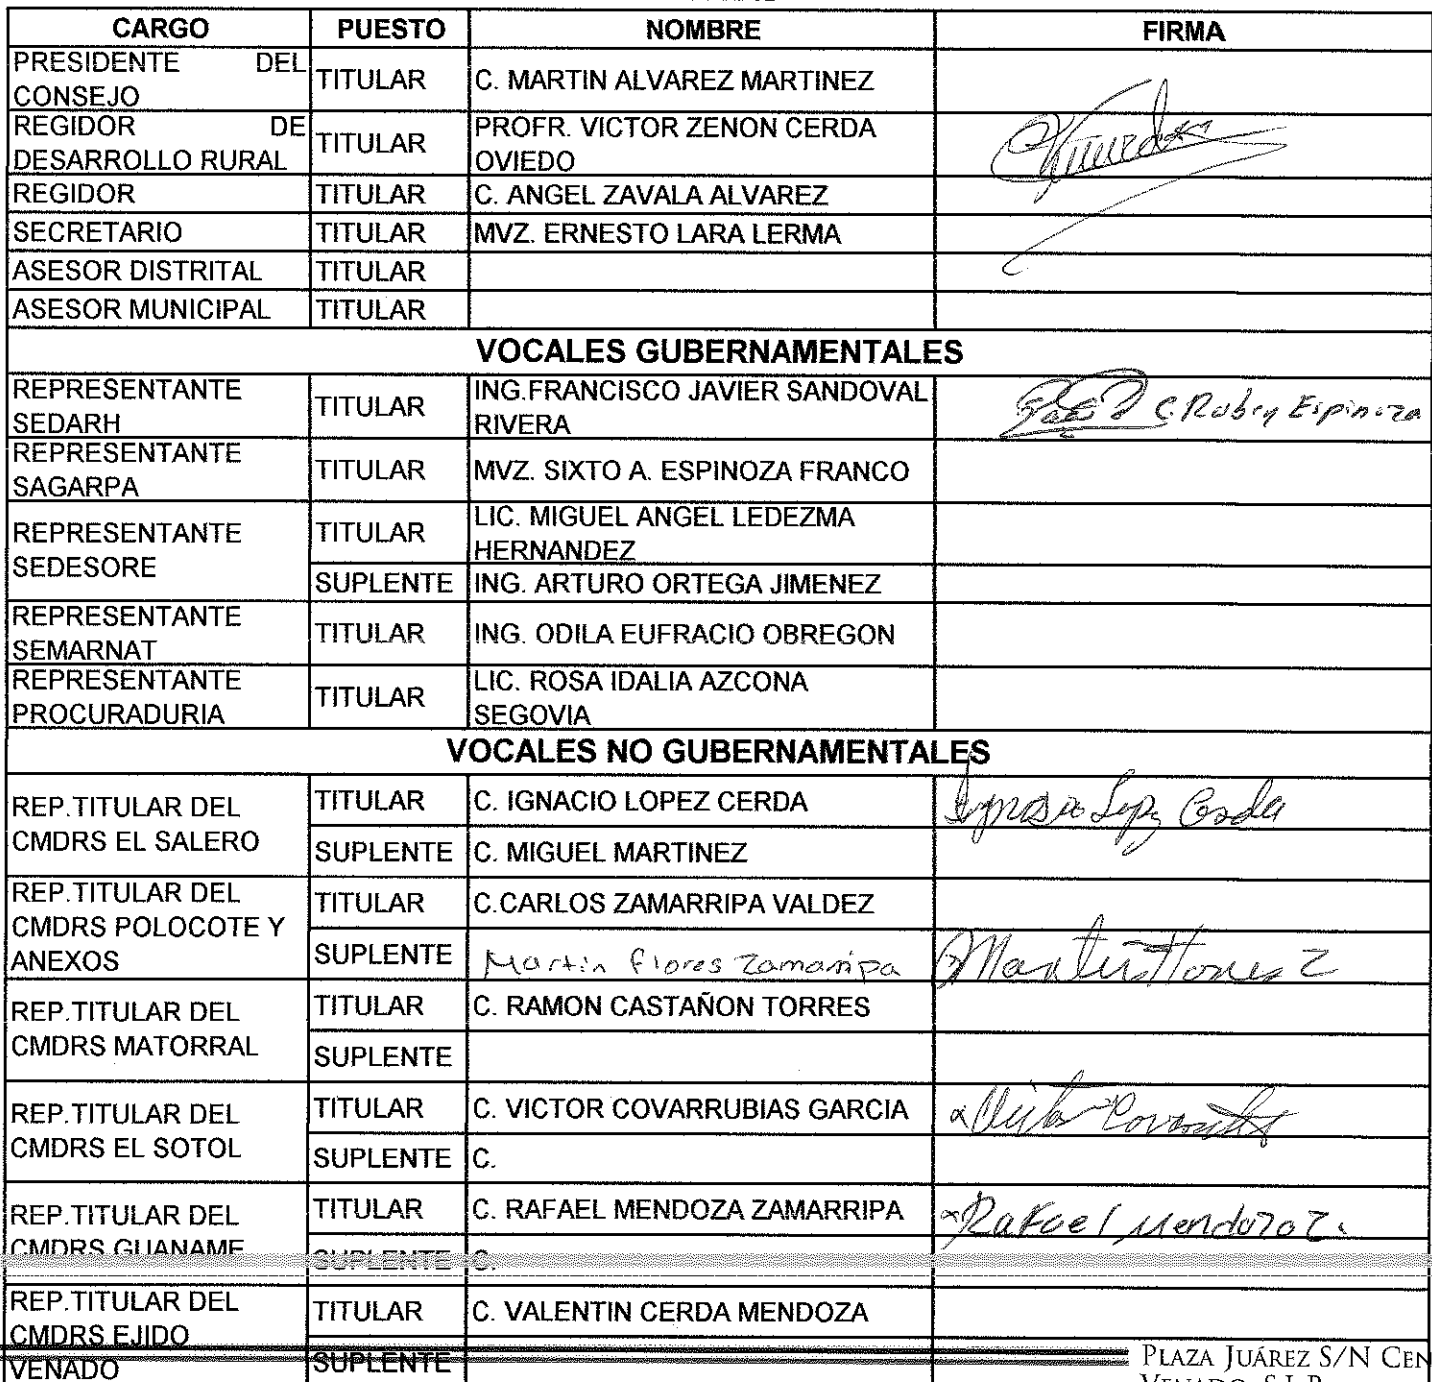 CARGO PUESTO NOMBRE FIRMA
PRESIDENTE DEL
CONSEJO
TITULAR C. MARTIN ALVAREZ MARTINEZ
REGIDOR DE
DESARROLLO RURAL
TITULAR
PROFR. VICTOR ZENON CERDA
OVIEDO
REGIDOR TITULAR C. ANGEL ZAVALA ALVAREZ
SECRETARIO TITULAR MVZ. ERNESTO LARA LERMA
ASESOR DISTRITAL TITULAR
ASESOR MUNICIPAL TITULAR
VOCALES GUBERNAMENTALES
REPRESENTANTE
SEDARH
TITULAR
ING.FRANCISCO JAVIER SANDOVAL
RIVERA
C. Ruben Espinoza
REPRESENTANTE
SAGARPA
TITULAR MVZ. SIXTO A. ESPINOZA FRANCO
REPRESENTANTE
SEDESORE
TITULAR
LIC. MIGUEL ANGEL LEDEZMA
HERNANDEZ
SUPLENTE ING. ARTURO ORTEGA JIMENEZ
REPRESENTANTE
SEMARNAT
TITULAR ING. ODILA EUFRACIO OBREGON
REPRESENTANTE
PROCURADURIA
TITULAR
LIC. ROSA IDALIA AZCONA
SEGOVIA
VOCALES NO GUBERNAMENTALES
REP.TITULAR DEL
CMDRS EL SALERO
TITULAR C. IGNACIO LOPEZ CERDA Ignacio Lopez Cerda
SUPLENTE C. MIGUEL MARTINEZ
REP.TITULAR DEL
CMDRS POLOCOTE Y
ANEXOS
TITULAR C.CARLOS ZAMARRIPA VALDEZ
SUPLENTE Martin flores Zamarripa Martin Flores Z
REP.TITULAR DEL
CMDRS MATORRAL
TITULAR C. RAMON CASTAÑON TORRES
SUPLENTE
REP.TITULAR DEL
CMDRS EL SOTOL
TITULAR C. VICTOR COVARRUBIAS GARCIA x Victor
SUPLENTE C.
REP.TITULAR DEL
CMDRS GUANAME
TITULAR C. RAFAEL MENDOZA ZAMARRIPA x Rafael Mendoza Z.
SUPLENTE C.
REP.TITULAR DEL
CMDRS EJIDO
VENADO
TITULAR C. VALENTIN CERDA MENDOZA
SUPLENTE
PLAZA JUÁREZ S/N CEN
VENADO, S.L.P.